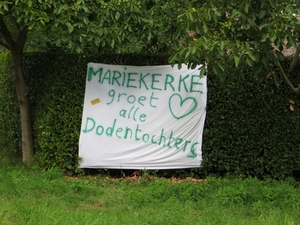 MARIEKERKE
groet
alle
Dodentochters